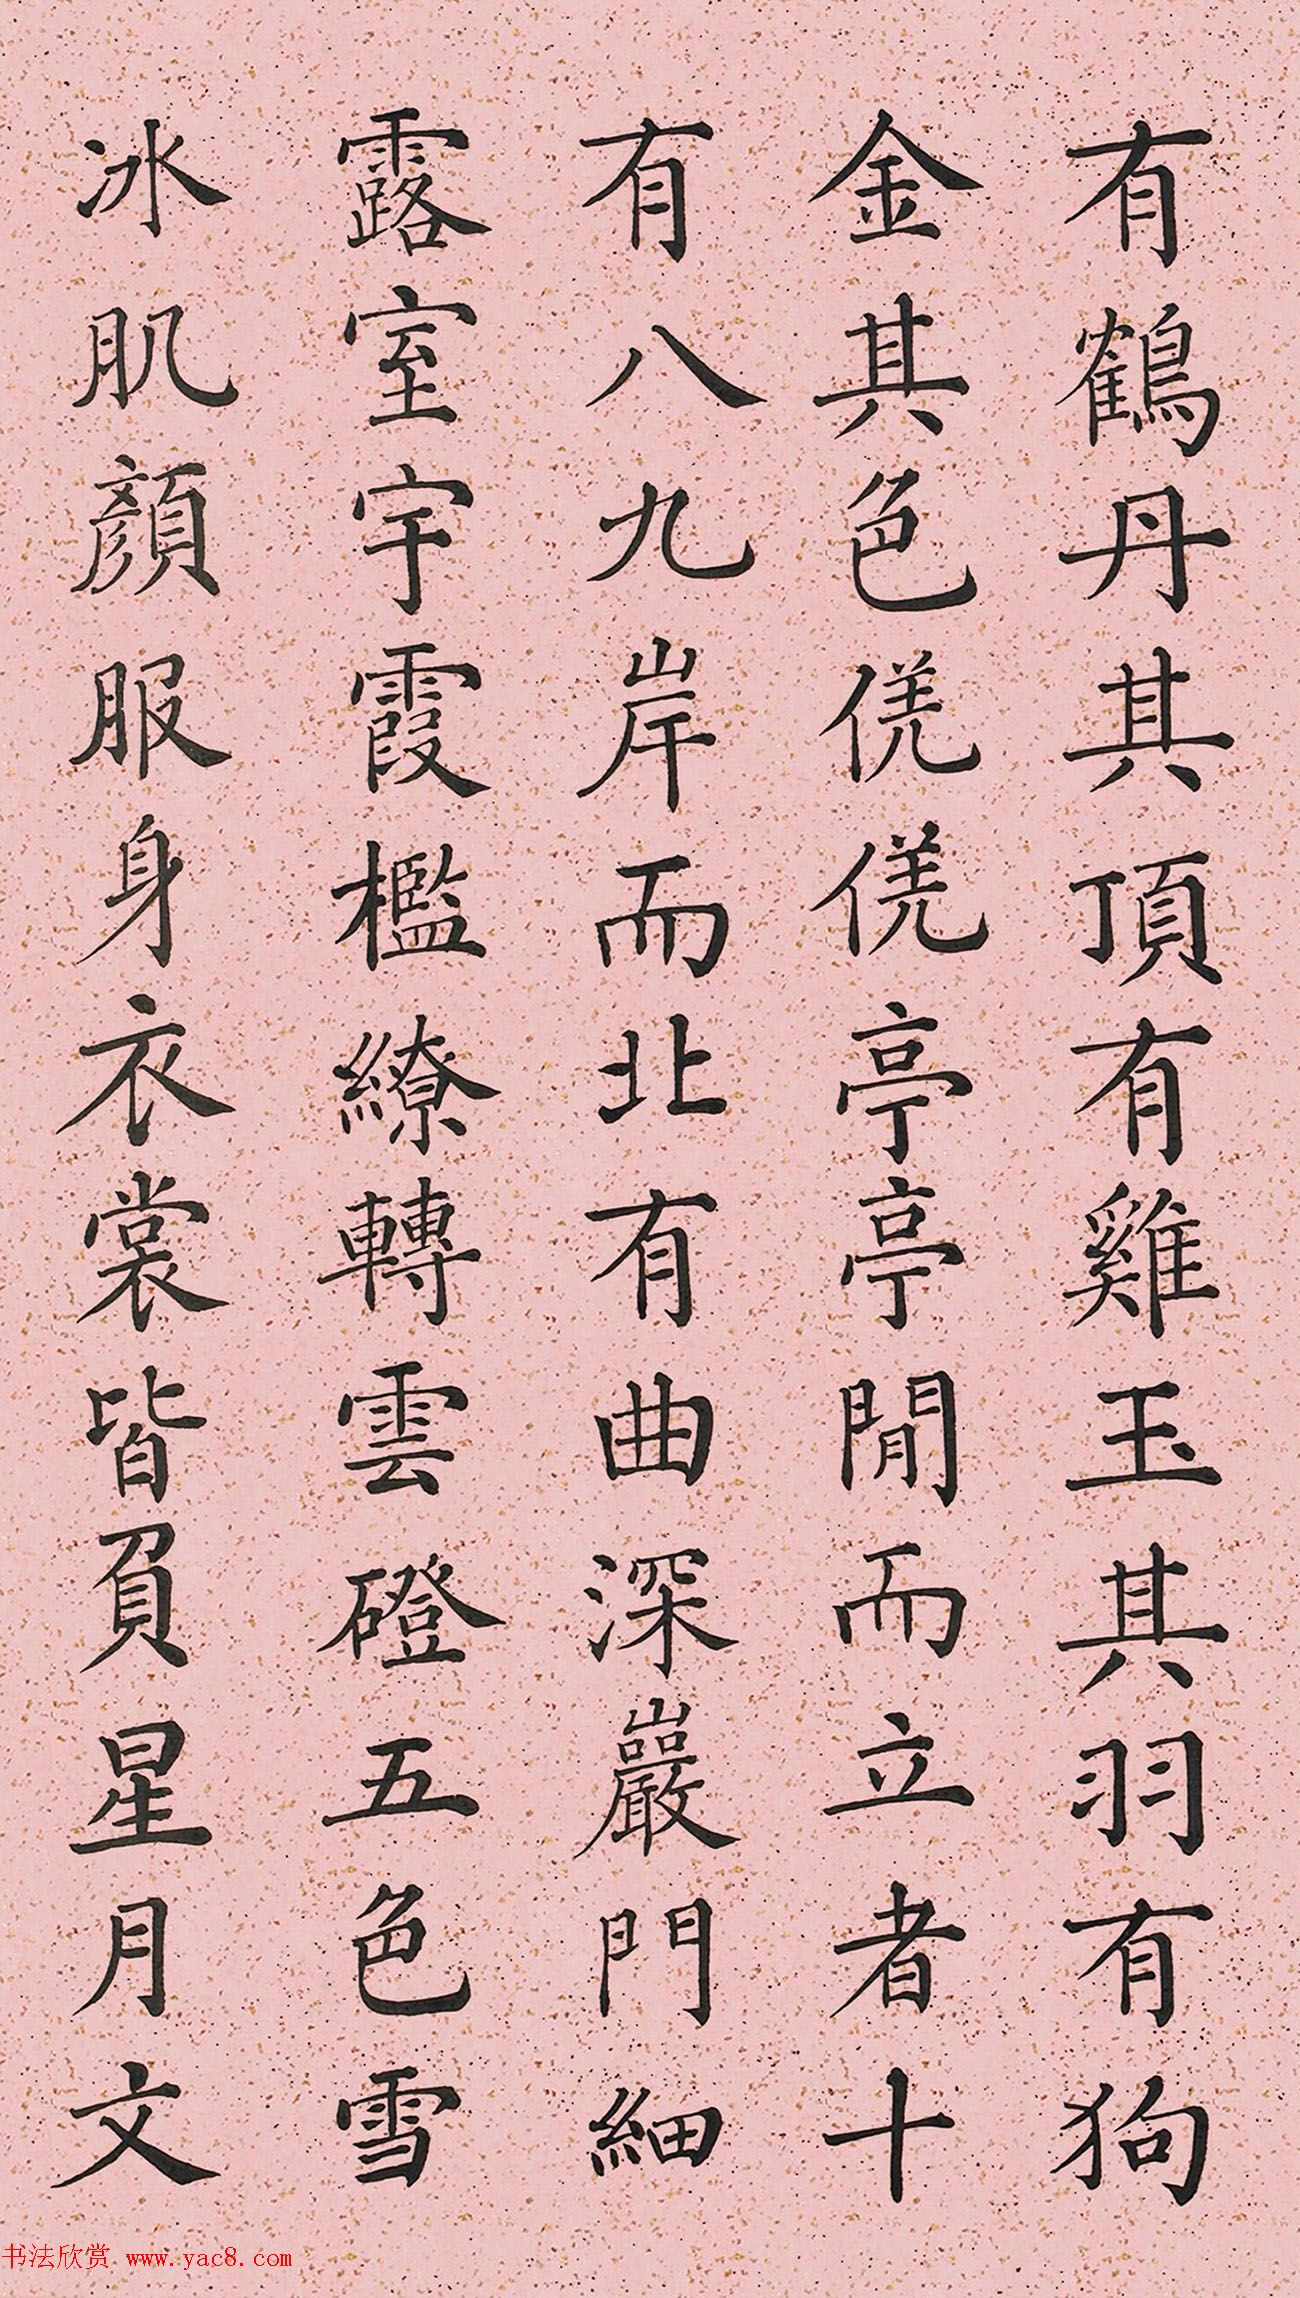 有鶴丹其頂有雞玉其羽有狗
金其色侊侊亭亭閒而立者十
有八九岸而北有曲深巖門細
露室宇霞檻繚轉雲磴五色雪
冰肌顏服身衣裳皆負星月文
书法欣赏 www.yac8.com